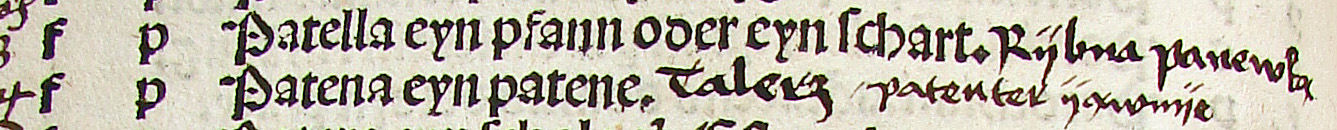 f p Patella eyn pfann oder eyn schart. Rÿbna panewka
f p Patena eyn patene. Talerz patenter ÿawnÿe